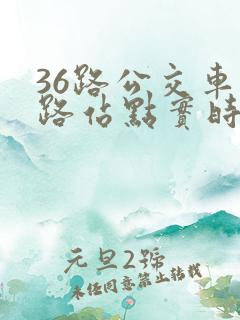 36路公交車
路佔點實時
元旦2號
未经同意禁止转载